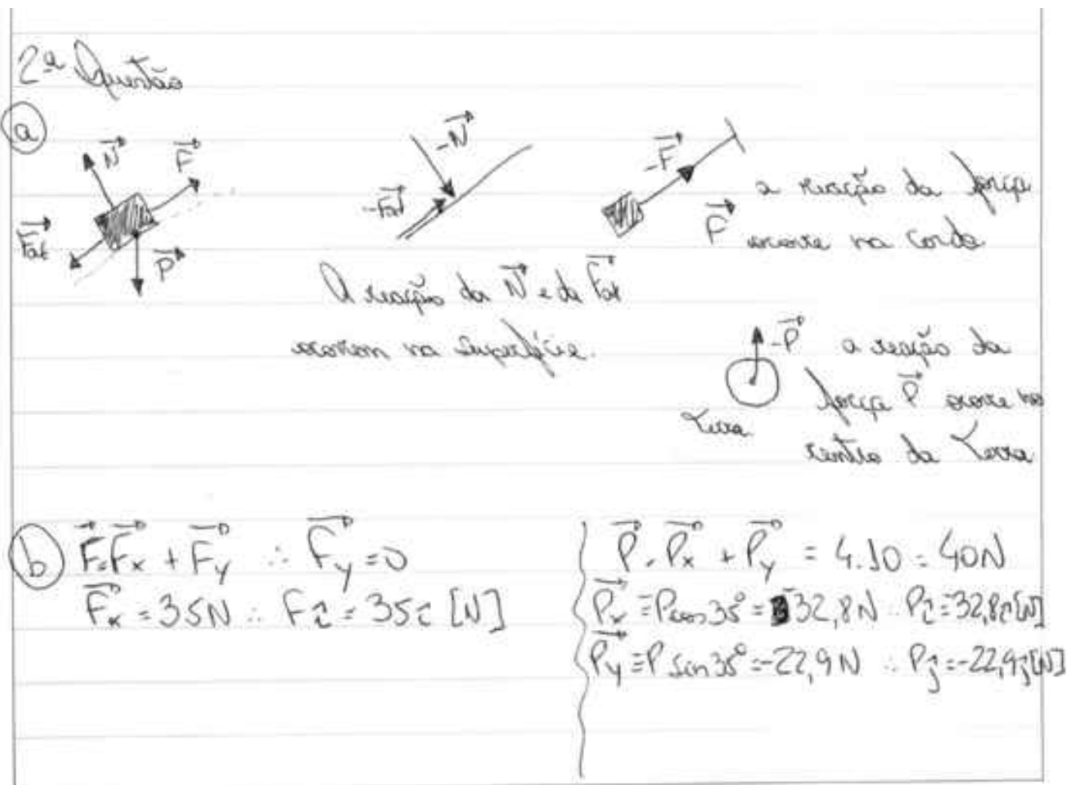 2ª Questão
a
N
F
Fat
P
-N
-Fat
A reação da N e da Fat
ocorrem na superfície.
-F
a reação da força
F ocorre na corda
-P a reação da
força P ocorre no
Terra centro da Terra
b F=Fx + Fy ∴ Fy=0
Fx = 35N ∴ Fî = 35î [N]
P=Px + Py = 4.10 = 40N
Px = Pcos35° = -32,8N ∴ Pî = -32,8î[N]
Py = P sin35° = -22,9N ∴ Pĵ = -22,9ĵ[N]